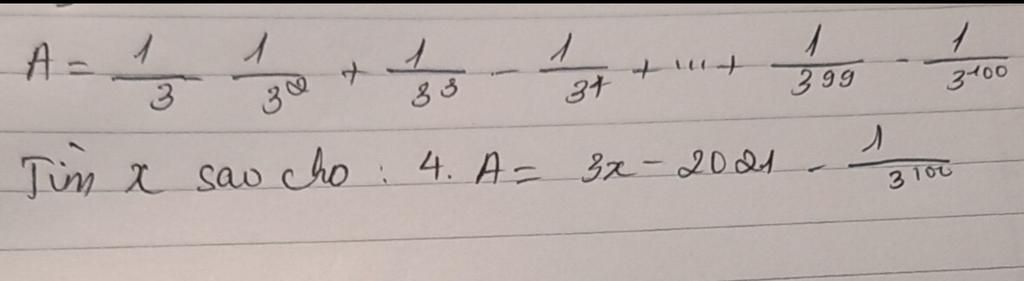 A = 1/3 1/3² + 1/3³ - 1/3⁴ + ... + 1/3⁹⁹ - 1/3¹⁰⁰
Tìm x sao cho : 4. A = 3x - 2021 - 1/3¹⁰⁰